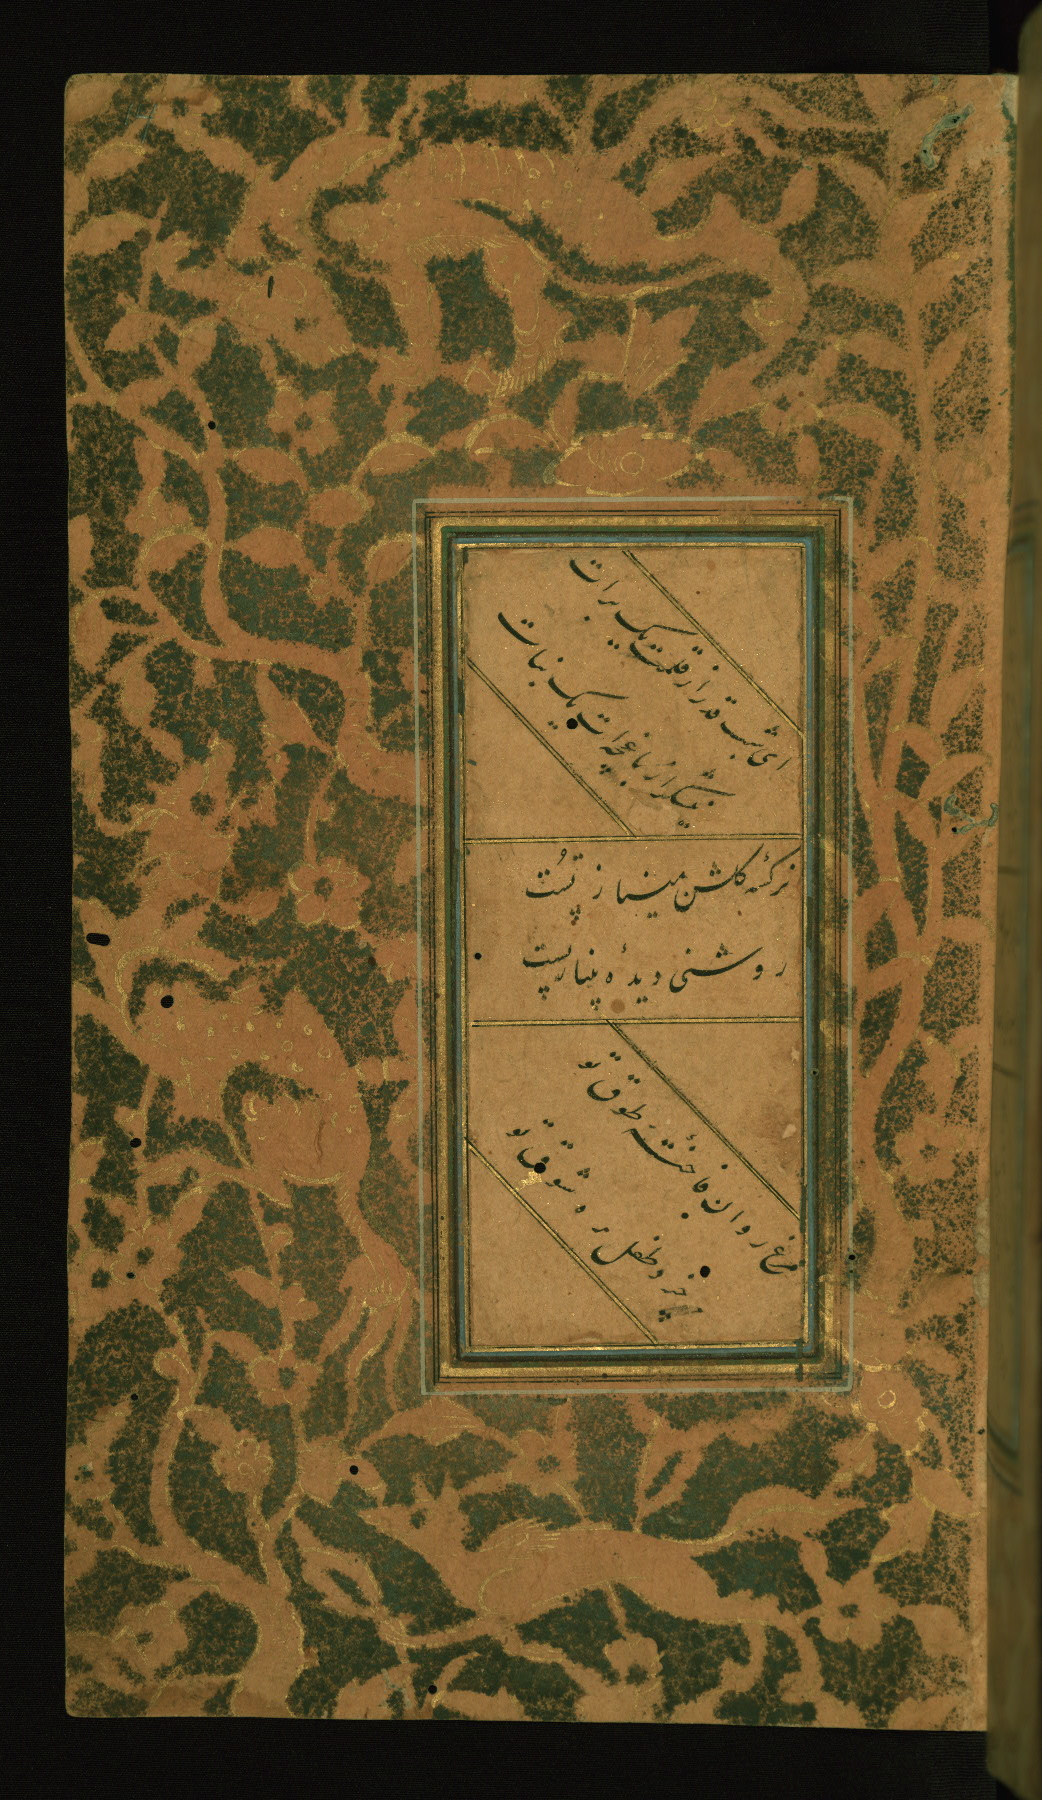 ای شب قدر از قلمت یک برات
نیشکر از باغچه‌ات یک نبات
نرگسهٔ گلشن مینا ز تست
روشنی دیدهٔ بینا ز تست
مرغ روان فاختهٔ طوق تو
پیر خرد طفل ره شوق تو